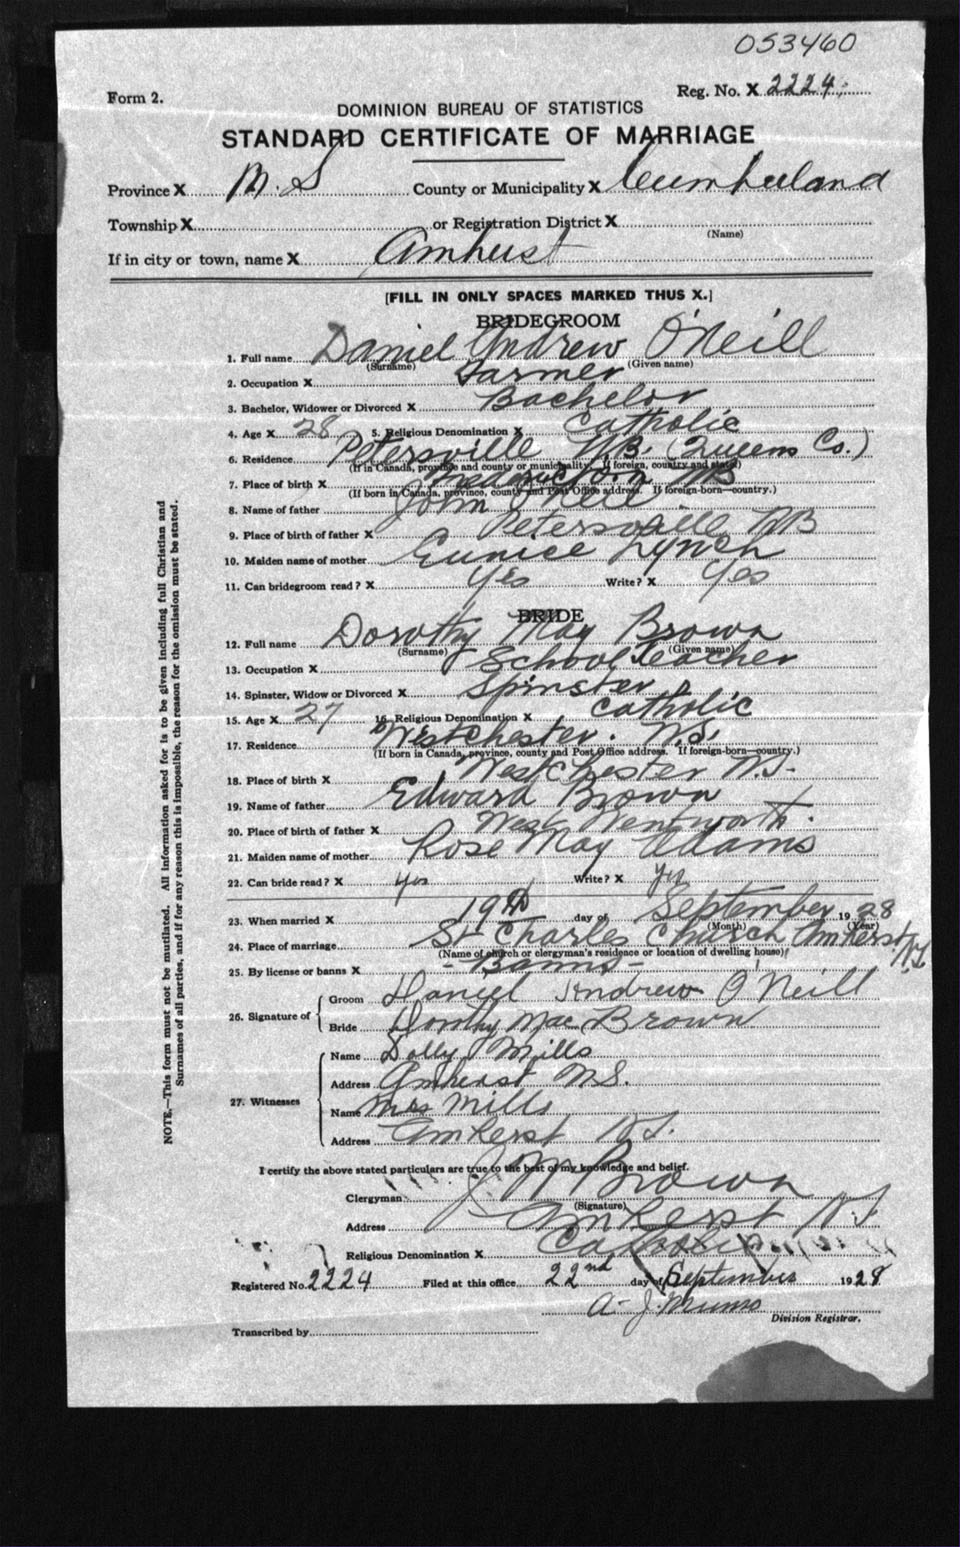 053460
Form 2.
Reg. No. X 2224
DOMINION BUREAU OF STATISTICS
STANDARD CERTIFICATE OF MARRIAGE
Province X N.S County or Municipality X Cumberland
Township X or Registration District X
(Name)
If in city or town, name X Amherst
[FILL IN ONLY SPACES MARKED THUS X.]
BRIDEGROOM
1. Full name Daniel Andrew O'Neill
(Surname) (Given name)
2. Occupation X Farmer
3. Bachelor, Widower or Divorced X Bachelor
4. Age X 28 5. Religious Denomination X Catholic
6. Residence Petersville N.B. (Queens Co.)
(If in Canada, province and county or municipality. If foreign, country and state)
7. Place of birth X Fredericton NB
(If born in Canada, province, county and Post Office address. If foreign-born—country.)
8. Name of father John O'Neill
9. Place of birth of father X Petersville NB
10. Maiden name of mother Eunice Lynch
11. Can bridegroom read? X Yes Write? X Yes
BRIDE
12. Full name Dorothy May Brown
(Surname) (Given name)
13. Occupation X School Teacher
14. Spinster, Widow or Divorced X Spinster
15. Age X 27 16. Religious Denomination X Catholic
17. Residence Westchester. N.S.
(If born in Canada, province, county and Post Office address. If foreign-born—country.)
18. Place of birth X Westchester N.S.
19. Name of father Edward Brown
20. Place of birth of father X West Wentworth.
21. Maiden name of mother Rose May Adams
22. Can bride read? X yes Write? X yes
23. When married X 19th day of September 1928
(Month) (Year)
24. Place of marriage St Charles Church Amherst N.S.
(Name of church or clergyman's residence or location of dwelling house)
25. By license or banns X - Banns -
26. Signature of
Groom Daniel Andrew O'Neill
Bride Dorothy Mae Brown
27. Witnesses
Name Dolly Mills
Address Amherst N.S.
Name Mrs Mills
Address Amherst N.S.
I certify the above stated particulars are true to the best of my knowledge and belief.
Clergyman J. M Brown
(Signature)
Address Amherst N.S
Religious Denomination X Catholic
Registered No. 2224 Filed at this office 22nd day of September 1928
A. J. Munro
Division Registrar.
Transcribed by
NOTE.—This form must not be mutilated. All information asked for is to be given including full Christian and
Surnames of all parties, and if for any reason this is impossible, the reason for the omission must be stated.